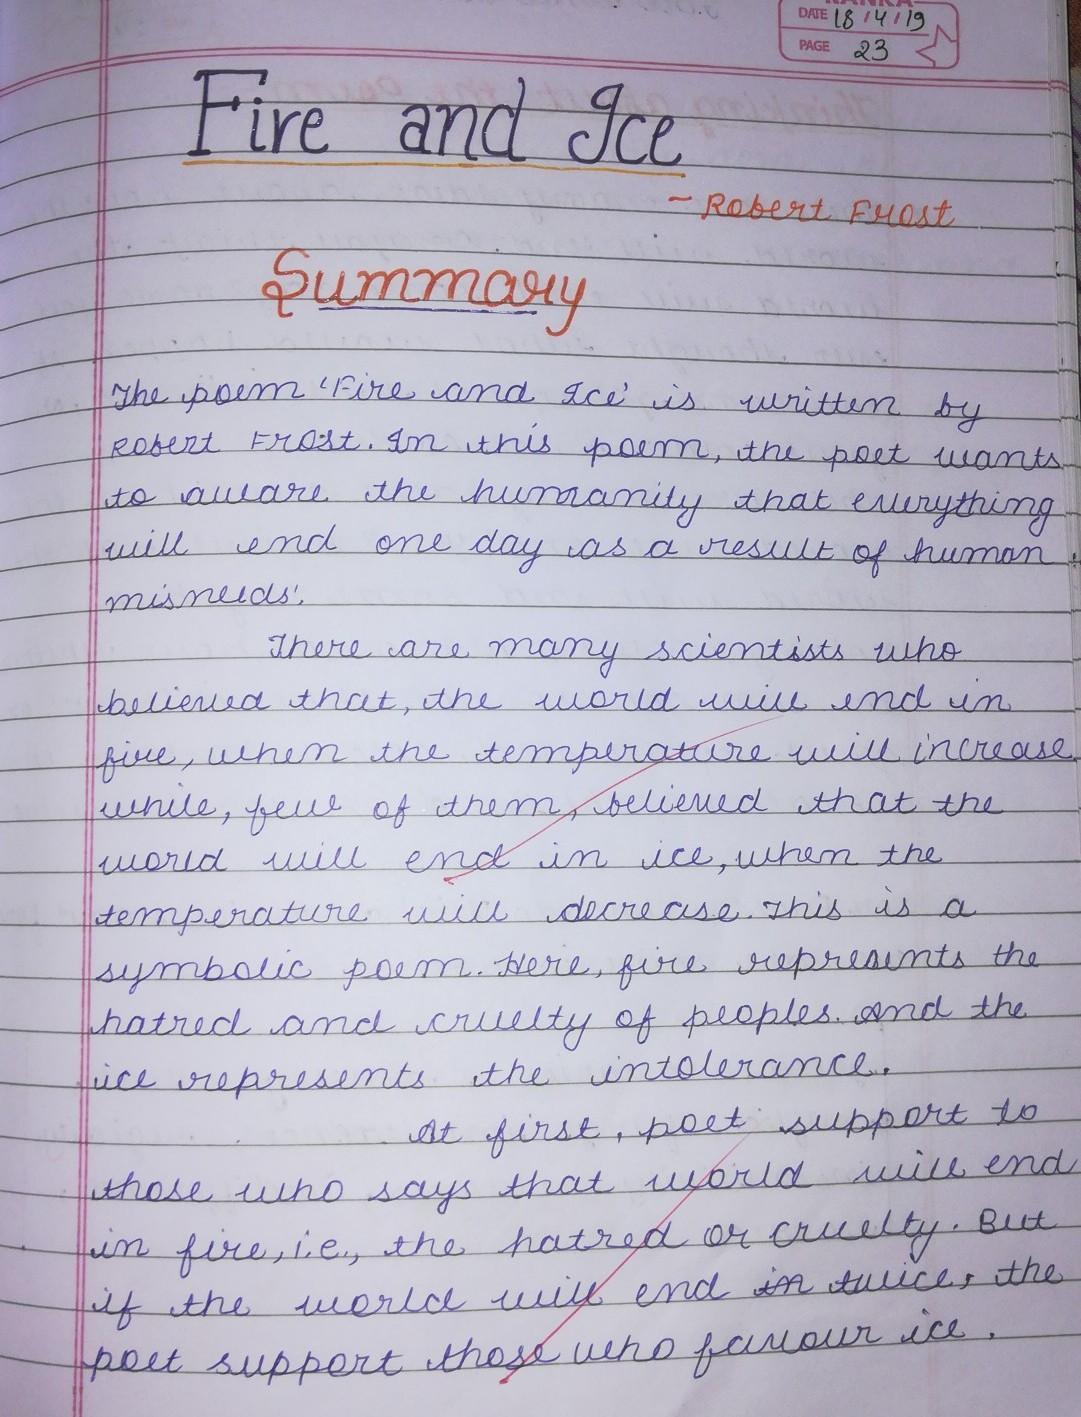 DATE 18/4/19
PAGE 23
Fire and Ice
- Robert Frost
Summary
The poem 'Fire and Ice' is written by
Robert Frost. In this poem, the poet wants
to aware the humanity that everything
will end one day as a result of human
There are many scientists who
believed that, the world will end in
fire, when the temperature will increase
while, few of them, believed that the
world will end in ice, when the
temperature will decrease. This is a
symbolic poem. Here, fire represents the
hatred and cruelty of peoples. And the
ice represents the intolerance.
At first, poet support to
those who says that world will end
in fire, i.e., the hatred or cruelty. But
if the world will end in twice, the
poet support those who favour ice.